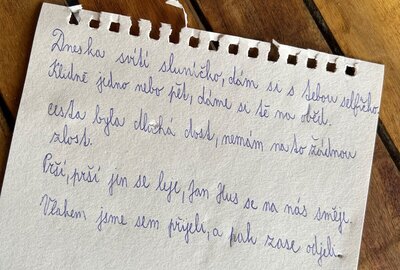 Dneska svítí sluníčko, dám si s tebou selfíčko.
Klidně jedno nebo pět, dáme si tě na oběd.
cesta byla dlouhá dost, nemám na to žádnou
zlost.
Prší, prší jen se lije, Jan Hus se na nás směje.
Vlakem jsme sem přijeli, a pak zase odjeli.